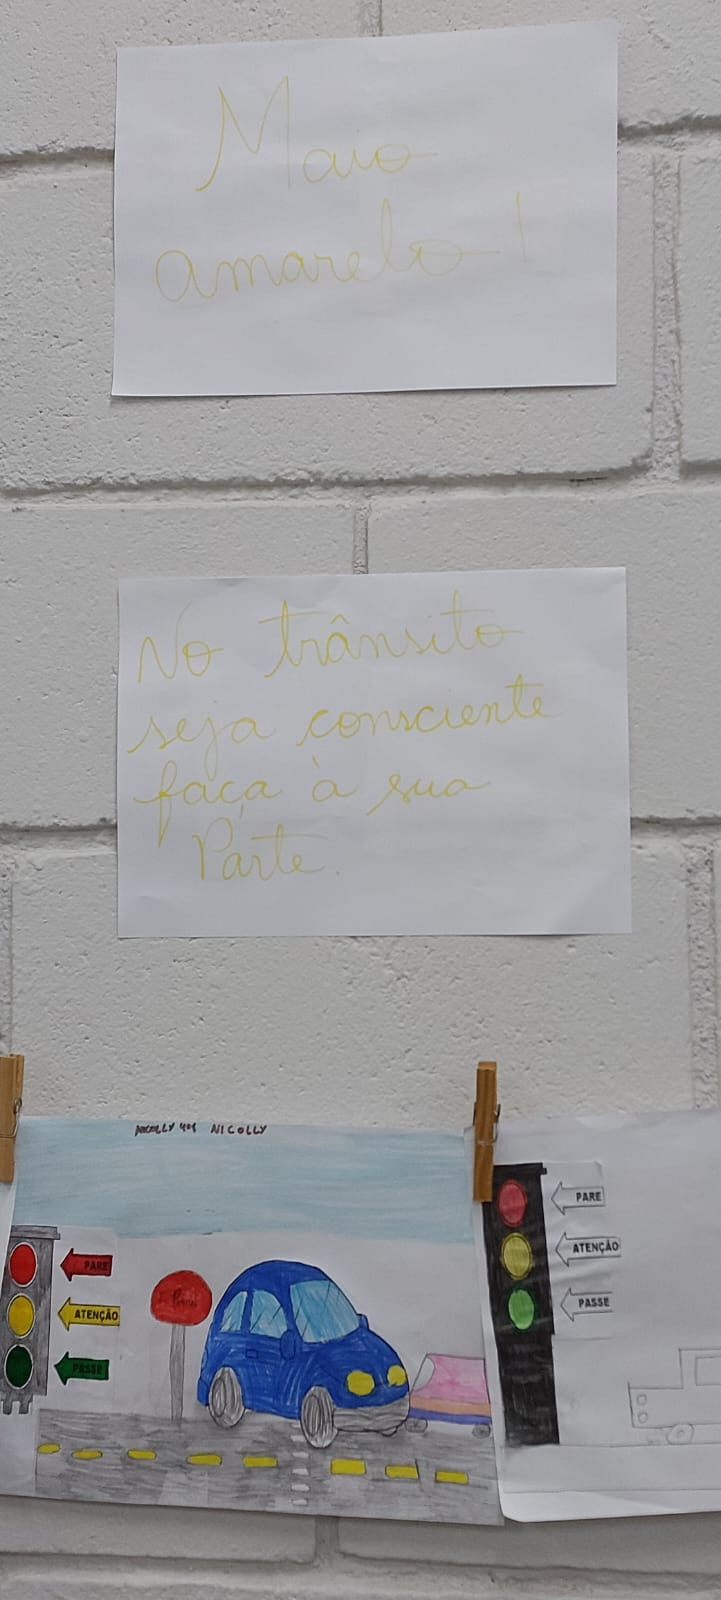 Maio
amarelo!
No trânsito
seja consciente
faça à sua
Parte.
NICOLLY
PARE
ATENÇÃO
PASSE
PARE
ATENÇÃO
PASSE